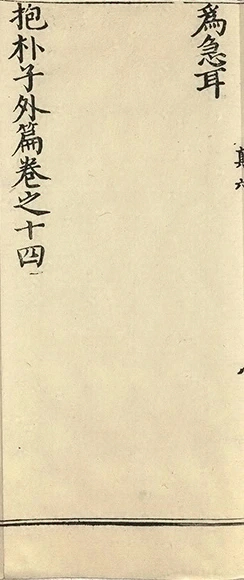 爲急耳
抱朴子外篇卷之十四